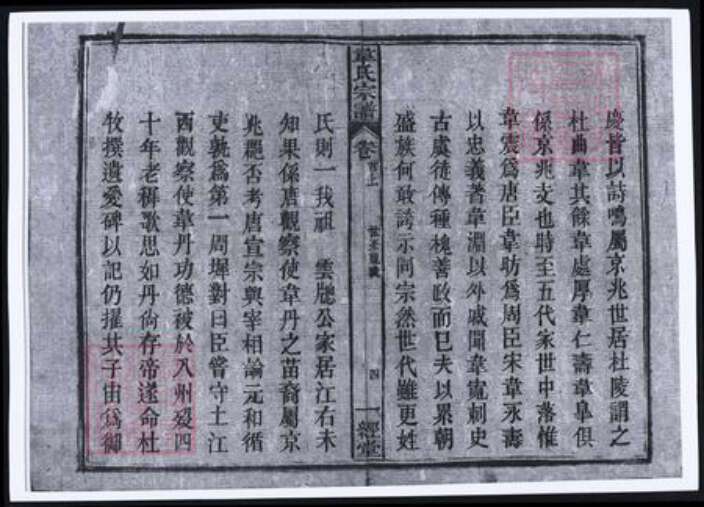 慶皆以詩鳴屬京兆世居杜陵謂之
杜曲韋其餘韋處厚韋仁壽韋臯俱
係京兆支也時至五代家世中落惟
韋震爲唐臣韋昉爲周臣宋韋永壽
以忠義著韋淵以外戚聞韋寬刺史
古虞徒傳種槐善政而已夫以累朝
盛族何敢誇示同宗然世代雖更姓
韋氏宗譜
卷
四
一經堂
氏則一我祖 雲牕公家居江右未
知果係唐觀察使韋丹之苗裔屬京
兆麗否考唐宣宗與宰相論元和循
吏孰爲第一周墀對曰臣嘗守土江
西觀察使韋丹功德被於八州歿四
十年老稺歌思如丹尙存帝遂命杜
牧撰遺愛碑以記仍擢其子宙爲御